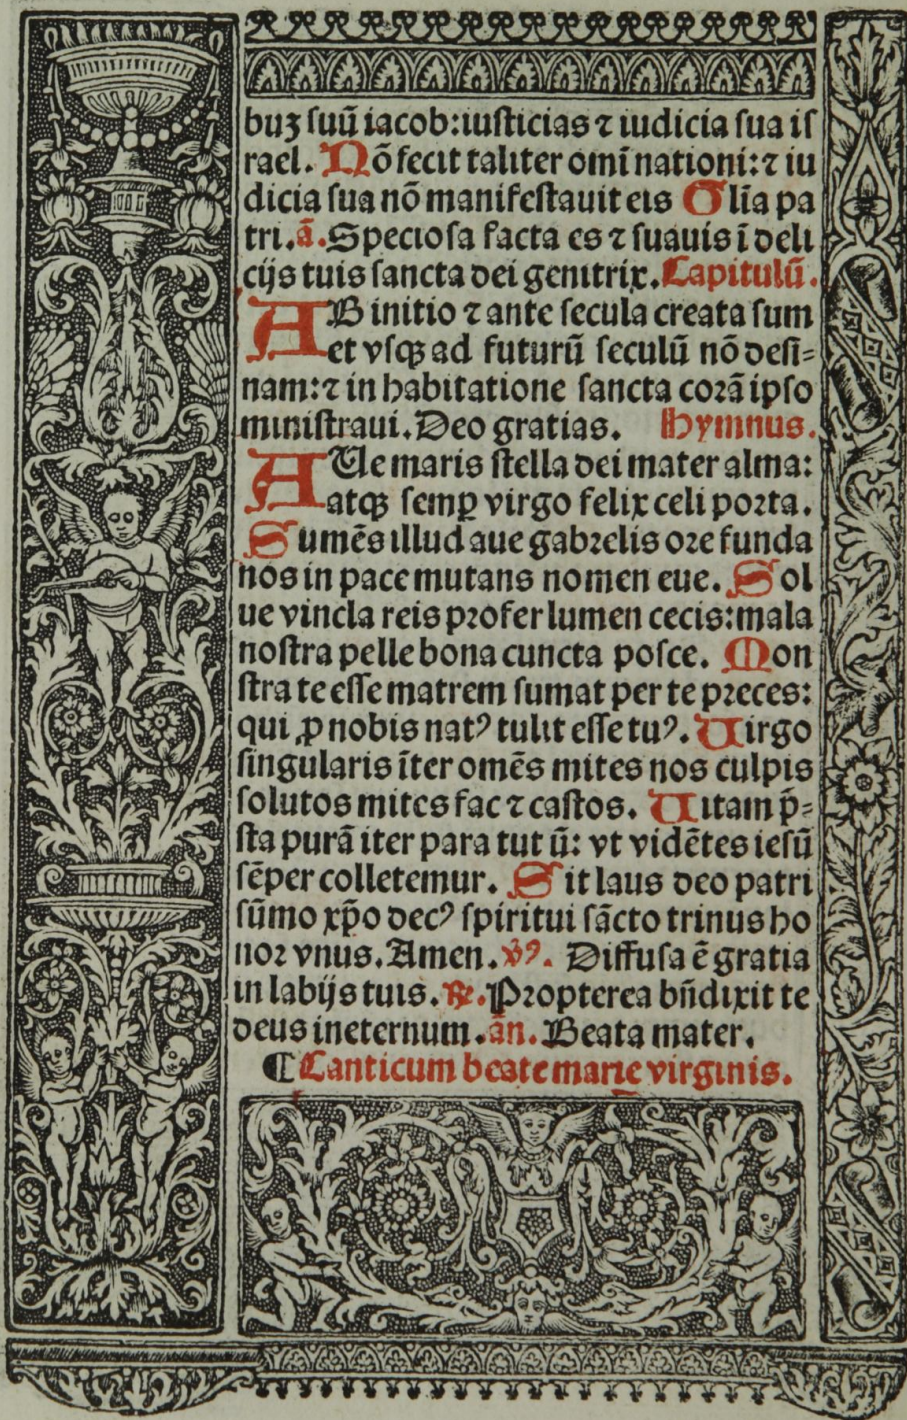 buꝫ suũ iacob:iusticias ⁊ iudicia sua is
rael. Nõ fecit taliter omĩ nationi:⁊ iu
dicia sua nõ manifestauit eis Gl̃ia pa
tri.ã. Speciosa facta es ⁊ suauis ĩ deli
cijs tuis sancta dei genitrix. Capitulũ.
AB initio ⁊ ante secula creata sum
et vsqꝫ ad futurũ seculũ nõ desi⸗
nam:⁊ in habitatione sancta corã ipso
ministraui. Deo gratias. Hymnus.
AUe maris stella dei mater alma:
atqꝫ semꝑ virgo felix celi porta.
Sumẽs illud aue gabrelis ore funda
nos in pace mutans nomen eue. Sol
ue vincla reis profer lumen cecis:mala
nostra pelle bona cuncta posce. Mon
stra te esse matrem sumat per te preces:
qui ꝓ nobis natꝰ tulit esse tuꝰ. Uirgo
singularis ĩter omẽs mites nos culpis
solutos mites fac ⁊ castos. Uitam p̃⸗
sta purã iter para tut ũ: vt vidẽtes iesũ
sẽper colletemur. Sit laus deo patri
sũmo xp̃o decꝰ spiritui sãcto trinus ho
nor vnus. Amen. v̉ꝰ. Diffusa ẽ gratia
in labijs tuis. ℞. Propterea bñdixit te
deus in eternum. añ. Beata mater.
¶ Canticum beate marie virginis.